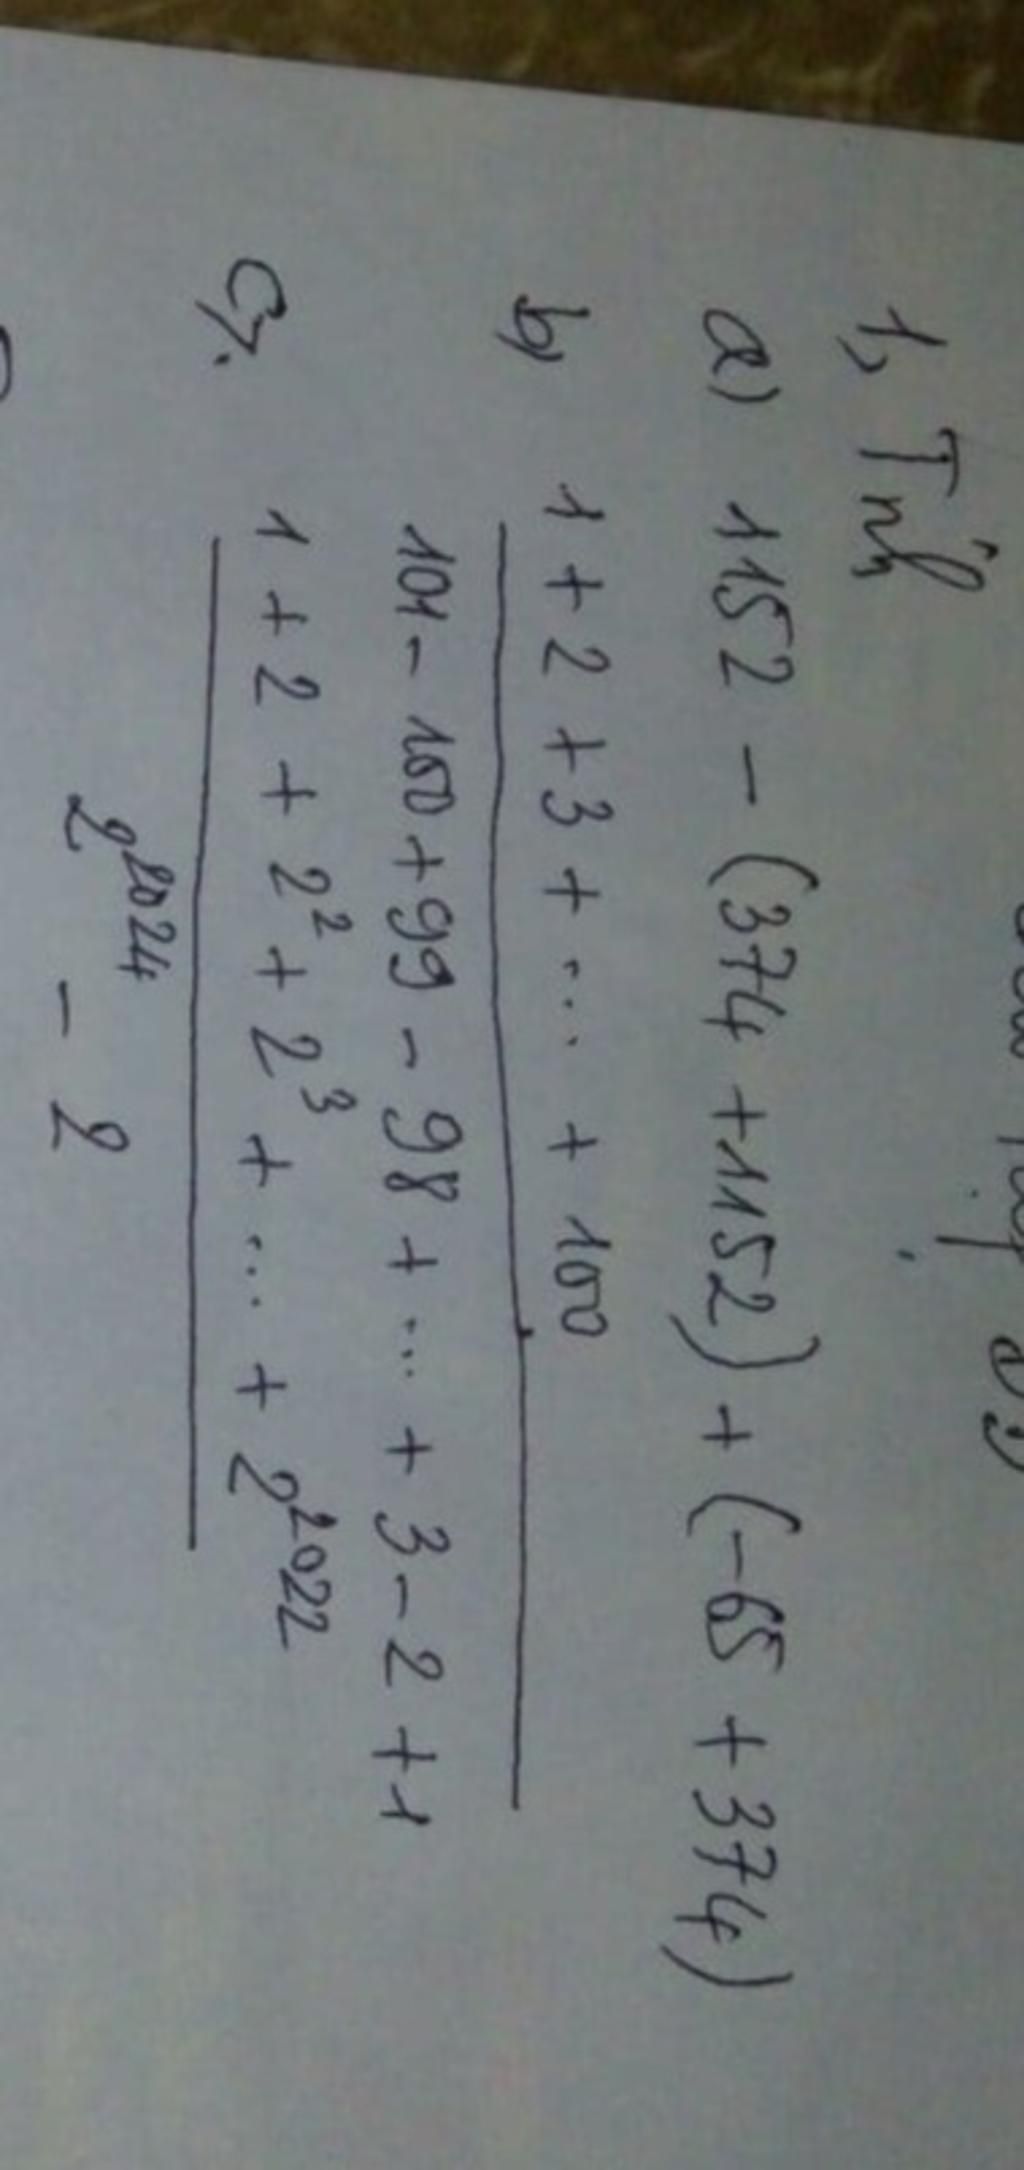 1, Tính
a) 1152 - (374 + 1152) + (-65 + 374)
b) 1 + 2 + 3 + ... + 100
101 - 100 + 99 - 98 + ... + 3 - 2 + 1
c). 1 + 2 + 2² + 2³ + ... + 2²⁰²²
2²⁰²⁴ - 2